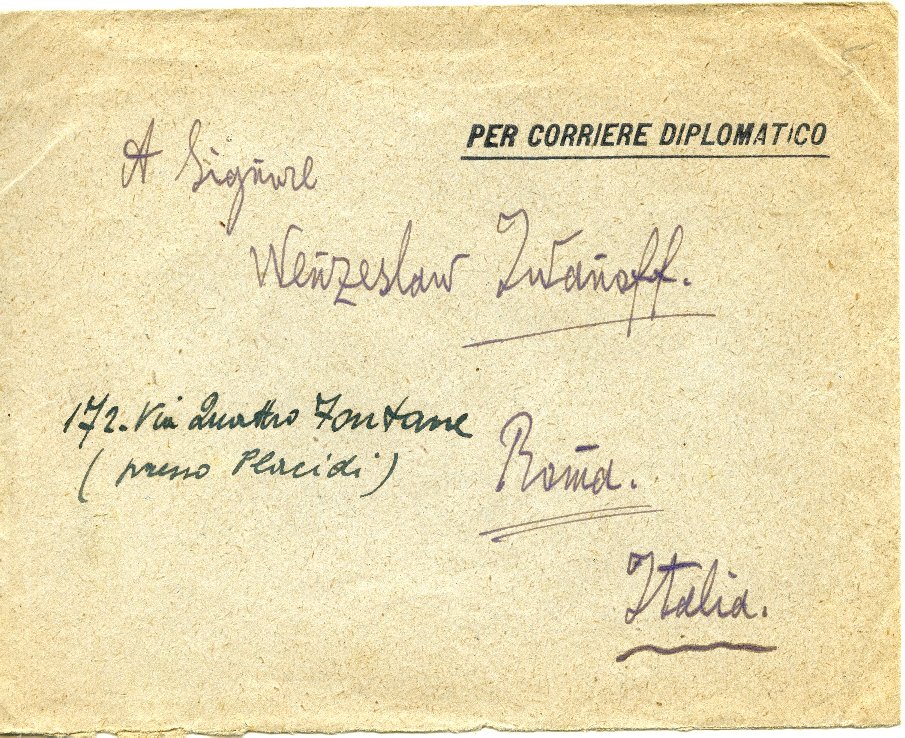 PER CORRIERE DIPLOMATICO
A Signore
Wenzeslaw Iwanoff.
172. Via Quattro Fontane
(presso Placidi)
Roma.
Italia.